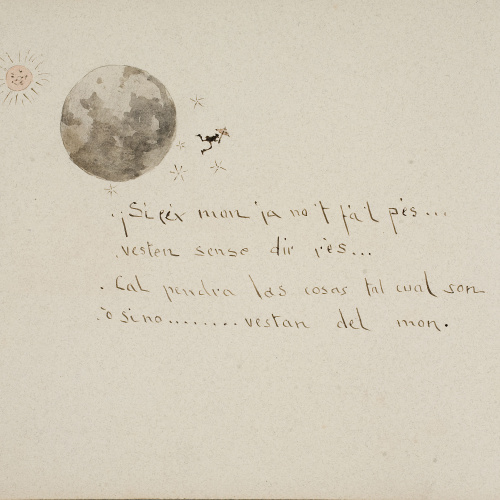 ¡Si eix mon ja no 't fa 'l pés...
vesten sense dir rès...
Cal pendra las cosas tal cual son
ò sino........vestan del mon.